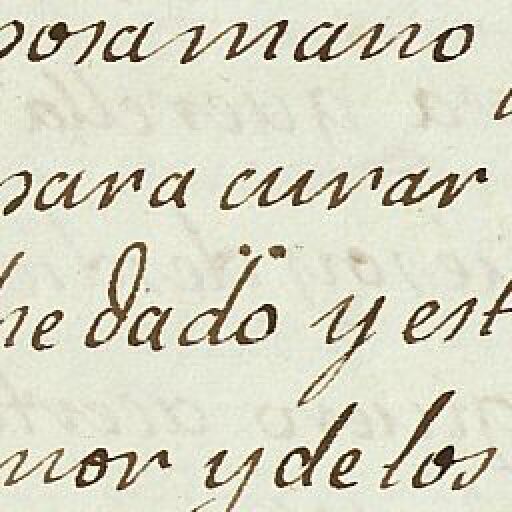 posamano
para curar
he dado y est
mor y de los